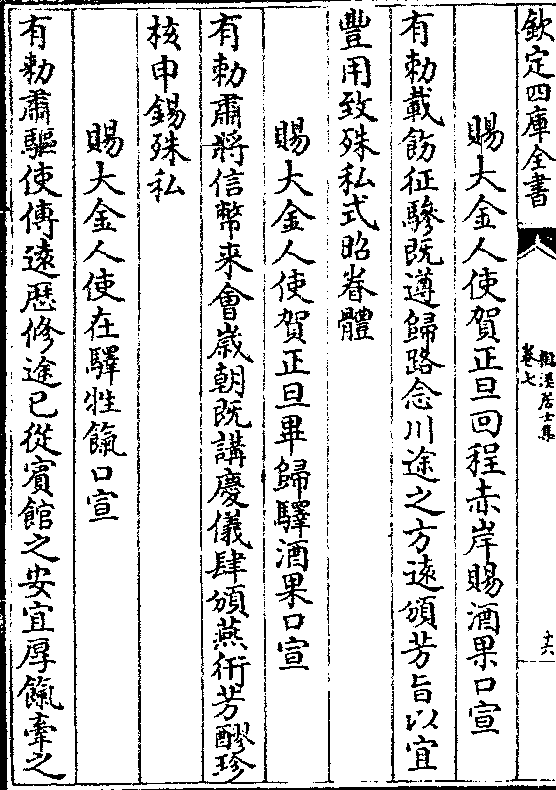 欽定四庫全書
卷七
十六
賜大金人使賀正旦回程赤岸賜酒果口宣
有勅載飭征驂既遵歸路念川途之方遠頒芳旨以宜
豐用致殊私式昭眷體
賜大金人使賀正旦畢歸驛酒果口宣
有勅肅將信幣来會嵗朝既講慶儀肆頒燕衎芳醪珍
核申錫殊私
賜大金人使在驛牲餼口宣
有勅肅驅使傳逺歴修途已從賓館之安宜厚餼牽之